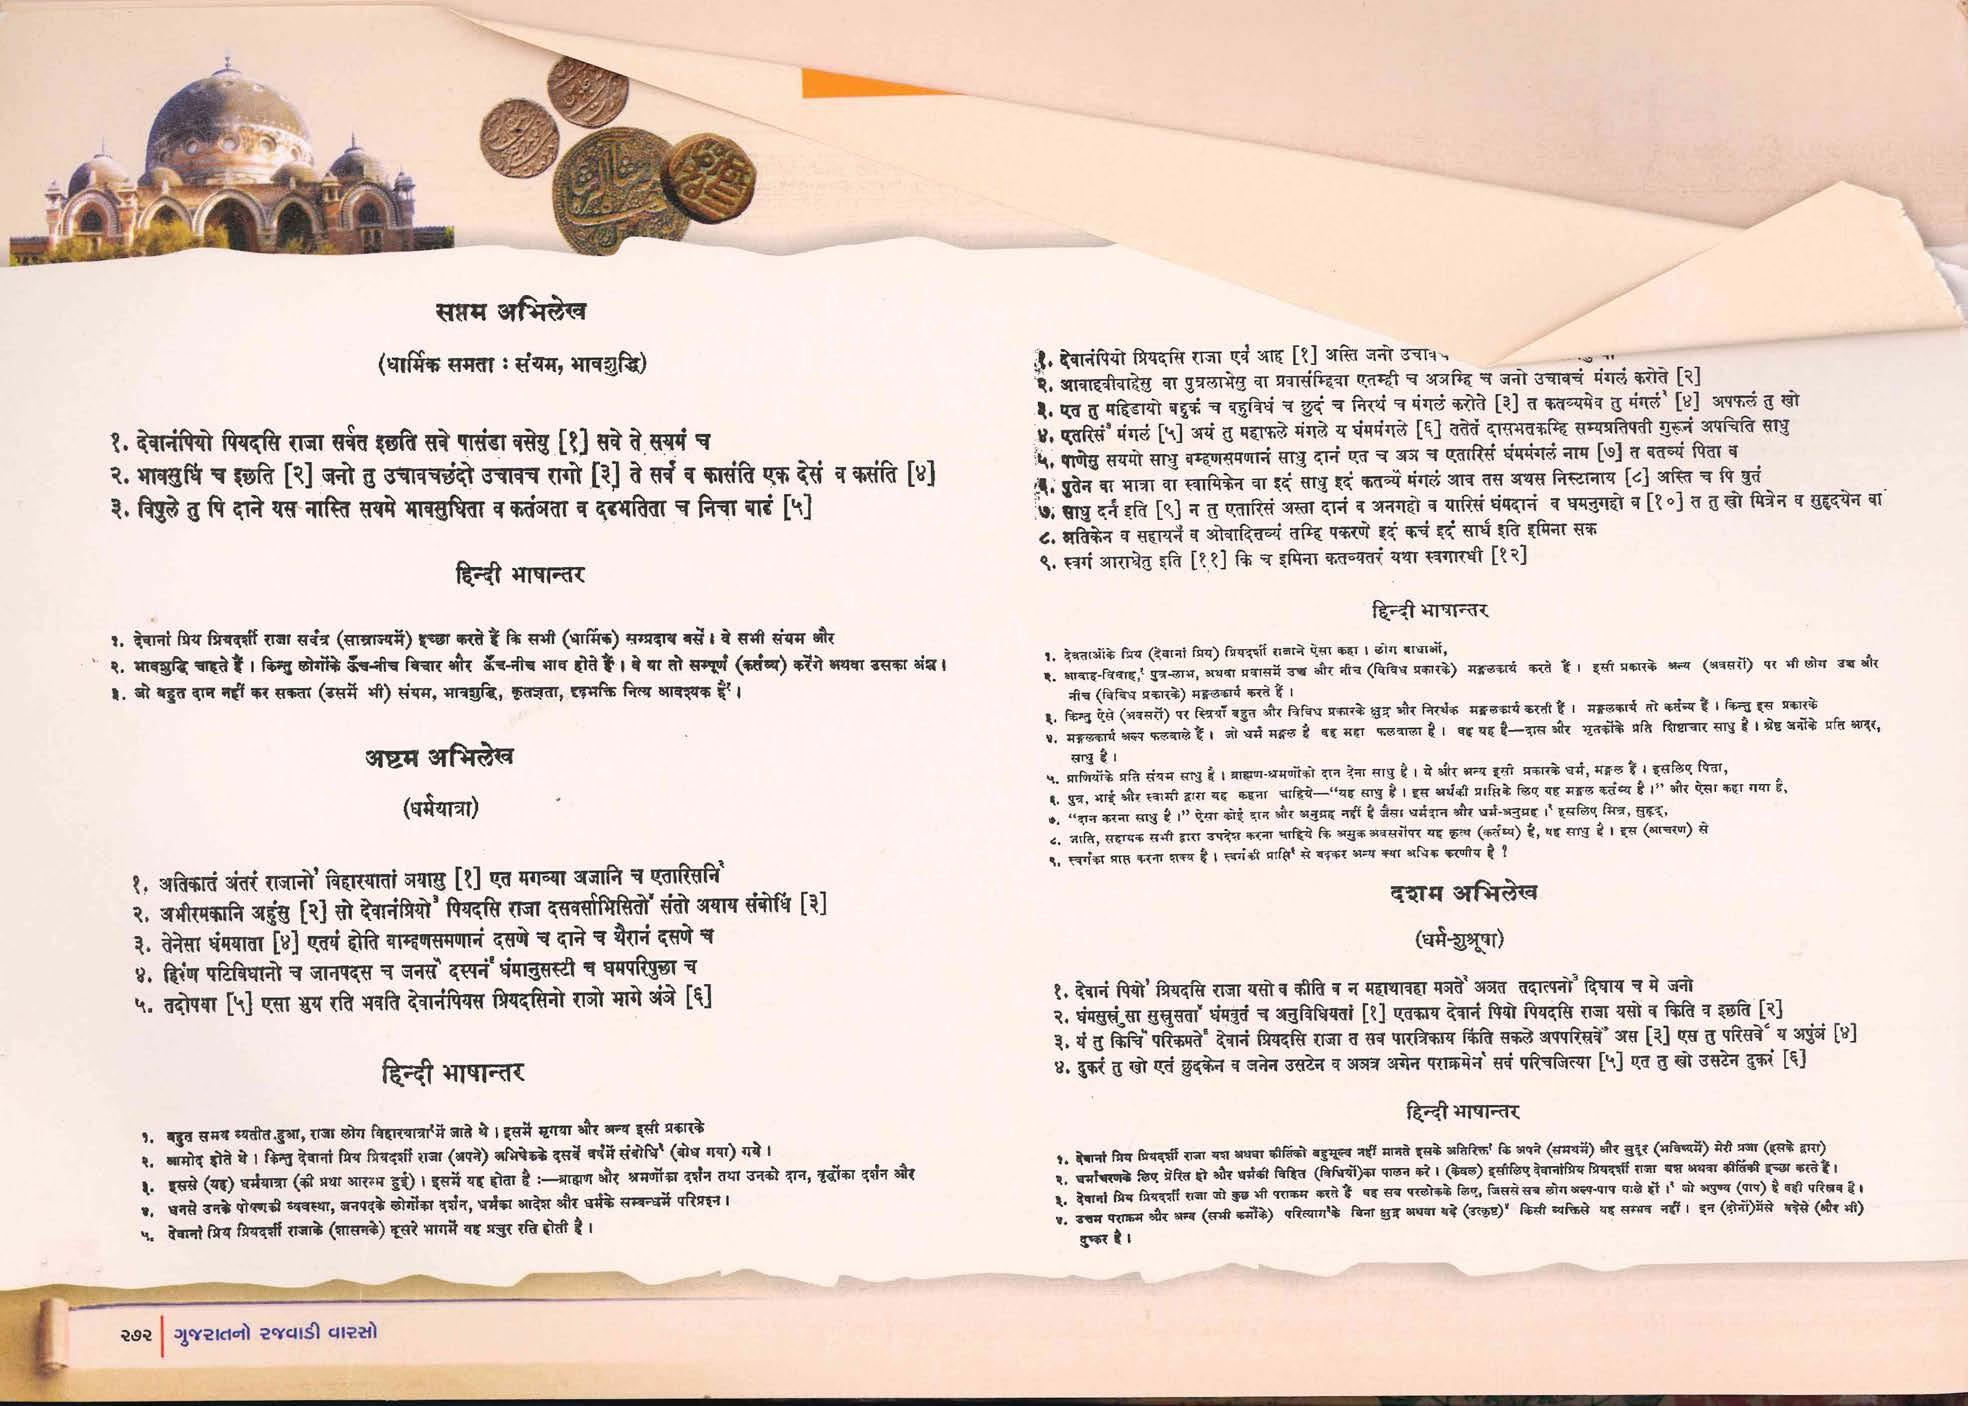 सप्तम अभिलेख
(धार्मिक समता : संयम, भावशुद्धि)
१. देवानंपियो पियदसि राजा सर्वत इछति सवे पासंडा वसेयु [१] सवे ते सयमं च
२. भावसुधिं च इछति [२] जनो तु उचावचछंदो उचावच रागो [३] ते सर्वं व कासंति एक देसं व कसंति [४]
३. विपुले तु पि दाने यस नास्ति सयमे भावसुधिता व कतंञता व दढभतिता च निचा बाढं [५]
हिन्दी भाषान्तर
१. देवानां प्रिय प्रियदर्शी राजा सर्वत्र (साम्राज्यमें) इच्छा करते हैं कि सभी (धार्मिक) सम्प्रदाय बसें। वे सभी संयम और
२. भावशुद्धि चाहते हैं। किन्तु लोगोंके ऊँच-नीच विचार और ऊँच-नीच भाव होते हैं। वे या तो सम्पूर्ण (कर्तव्य) करेंगे अथवा उसका अंश।
३. जो बहुत दान नहीं कर सकता (उसमें भी) संयम, भावशुद्धि, कृतज्ञता, दृढ़भक्ति नित्य आवश्यक हैं।
अष्टम अभिलेख
(धर्मयात्रा)
१. अतिकातं अंतरं राजानो विहारयातां ञयासु [१] एत मगव्या अञानि च एतारिसनि
२. अभीरमकानि अहुंसु [२] सो देवानंप्रियो पियदसि राजा दसवर्साभिसितो संतो अयाय संबोधिं [३]
३. तेनेसा धंमयाता [४] एतयं होति बाम्हणसमणानं दसणे च दाने च थैरानं दसणे च
४. हिरंण पटिविधानो च जानपदस च जनस दस्पनं धंमानुसस्टी च धमपरिपुछा च
५. तदोपया [५] एसा भुय रति भवति देवानंपियस प्रियदसिनो राञो भागे अंञे [६]
हिन्दी भाषान्तर
१. बहुत समय व्यतीत हुआ, राजा लोग विहारयात्रामें जाते थे। इसमें मृगया और अन्य इसी प्रकारके
२. आमोद होते थे। किन्तु देवानां प्रिय प्रियदर्शी राजा (अपने) अभिषेकके दसवें वर्षमें संबोधि (बोध गया) गये।
३. इससे (यह) धर्मयात्रा (की प्रथा आरम्भ हुई)। इसमें यह होता है :—ब्राह्मण और श्रमणोंका दर्शन तथा उनको दान, वृद्धोंका दर्शन और
४. धनसे उनके पोषणकी व्यवस्था, जनपदके लोगोंका दर्शन, धर्मका आदेश और धर्मके सम्बन्धमें परिप्रश्न।
५. देवानां प्रिय प्रियदर्शी राजाके (शासनके) दूसरे भागमें यह प्रचुर रति होती है।
१. देवानंपियो प्रियदसि राजा एवं आह [१] अस्ति जनो
२. आवाहवीवाहेसु वा पुत्रलाभेसु वा प्रवासंम्हिवा एतम्ही च अञम्हि च जनो उचावचं मंगलं करोते [२]
३. एत तु महिडायो बहुकं च बहुविधं च छुदं च निरथं च मंगलं करोते [३] त कतव्यमेव तु मंगलं [४] अपफलं तु खो
४. एतरिसं मंगलं [५] अयं तु महाफले मंगले य धंममंगले [६] ततेतं दासभतकम्हि सम्यप्रतिपती गुरूनं अपचिति साधु
५. पाणेसु सयमो साधु बम्हणसमणानं साधु दानं एत च अञ च एतारिसं धंममंगलं नाम [७] त वतव्यं पिता व
६. पुतेन वा भात्रा वा स्वामिकेन वा इदं साधु इदं कतव्यं मंगलं आव तस अथस निस्टानाय [८] अस्ति च पि वुतं
७. साधु दनं इति [९] न तु एतारिसं अस्ता दानं व अनगहो व यारिसं धंमदानं व धमनुगहो व [१०] त तु खो मित्रेन व सुहदयेन वा
८. ञतिकेन व सहायन व ओवादितव्यं तम्हि पकरणे इदं कचं इदं साधं इति इमिना सक
९. स्वगं आराधेतु इति [११] कि च इमिना कतव्यतरं यथा स्वगारधी [१२]
हिन्दी भाषान्तर
१. देवताओंके प्रिय (देवानां प्रिय) प्रियदर्शी राजाने ऐसा कहा। लोग बाधाओं,
२. आवाह-विवाह, पुत्र-लाभ, अथवा प्रवासमें उच्च और नीच (विविध प्रकारके) मङ्गलकार्य करते हैं। इसी प्रकारके अन्य (अवसरों) पर भी लोग उच्च और
नीच (विविध प्रकारके) मङ्गलकार्य करते हैं।
३. किन्तु ऐसे (अवसरों) पर स्त्रियाँ बहुत और विविध प्रकारके क्षुद्र और निरर्थक मङ्गलकार्य करती हैं। मङ्गलकार्य तो कर्तव्य हैं। किन्तु इस प्रकारके
४. मङ्गलकार्य अल्प फलवाले हैं। जो धर्म मङ्गल है वह महा फलवाला है। वह यह है—दास और भृतकोंके प्रति शिष्टाचार साधु है। श्रेष्ठ जनोंके प्रति आदर,
साधु है।
५. प्राणियोंके प्रति संयम साधु है। ब्राह्मण-श्रमणोंको दान देना साधु है। ये और अन्य इसी प्रकारके धर्म, मङ्गल हैं। इसलिए पिता,
६. पुत्र, भाई और स्वामी द्वारा यह कहना चाहिये—“यह साधु है। इस अर्थकी प्राप्तिके लिए यह मङ्गल कर्तव्य है।” और ऐसा कहा गया है,
७. “दान करना साधु है।” ऐसा कोई दान और अनुग्रह नहीं है जैसा धर्मदान और धर्म-अनुग्रह। इसलिए मित्र, सुहृद्,
८. ज्ञाति, सहायक सभी द्वारा उपदेश करना चाहिये कि अमुक अवसरोंपर यह कृत्य (कर्तव्य) है, यह साधु है। इस (आचरण) से
९. स्वर्गका प्राप्त करना शक्य है। स्वर्गकी प्राप्ति से बढ़कर अन्य क्या अधिक करणीय है ?
दशम अभिलेख
(धर्म-शुश्रूषा)
१. देवानं पियो प्रियदसि राजा यसो व कीति व न महाथावहा मञते अञत तदात्पनो दिघाय च मे जनो
२. धंमसुस्रुंसा सुस्रुसता धंमवुतं च अनुविधियतां [१] एतकाय देवानं पियो पियदसि राजा यसो व किति व इछति [२]
३. यं तु किचि परिकमते देवानं प्रियदसि राजा त सव पारत्रिकाय किंति सकले अपपरिस्रवे अस [३] एस तु परिसवे य अपुंञं [४]
४. दुकरं तु खो एतं छुदकेन व जनेन उसटेन व अञत्र अगेन पराक्रमेन सवं परिचजित्पा [५] एत तु खो उसटेन दुकरं [६]
हिन्दी भाषान्तर
१. देवानां प्रिय प्रियदर्शी राजा यश अथवा कीर्तिको बहुमूल्य नहीं मानते इसके अतिरिक्त कि अपने (समयमें) और सुदूर (भविष्यमें) मेरी प्रजा (इसके द्वारा)
२. धर्माचरणके लिए प्रेरित हो और धर्मकी विहित (विधियों)का पालन करे। (केवल) इसीलिए देवानांप्रिय प्रियदर्शी राजा यश अथवा कीर्तिकी इच्छा करते हैं।
३. देवानां प्रिय प्रियदर्शी राजा जो कुछ भी पराक्रम करते हैं वह सब परलोकके लिए, जिससे सब लोग अल्प-पाप वाले हों। जो अपुण्य (पाप) है वही परिस्रव है।
४. उत्तम पराक्रम और अन्य (सभी कर्मोंके) परित्यागके बिना क्षुद्र अथवा बड़े (उत्कृष्ट) किसी व्यक्तिसे यह सम्भव नहीं। इन (दोनों)मेंसे बड़ेसे (और भी)
दुष्कर है।
૨૭૨ ગુજરાતનો રજવાડી વારસો